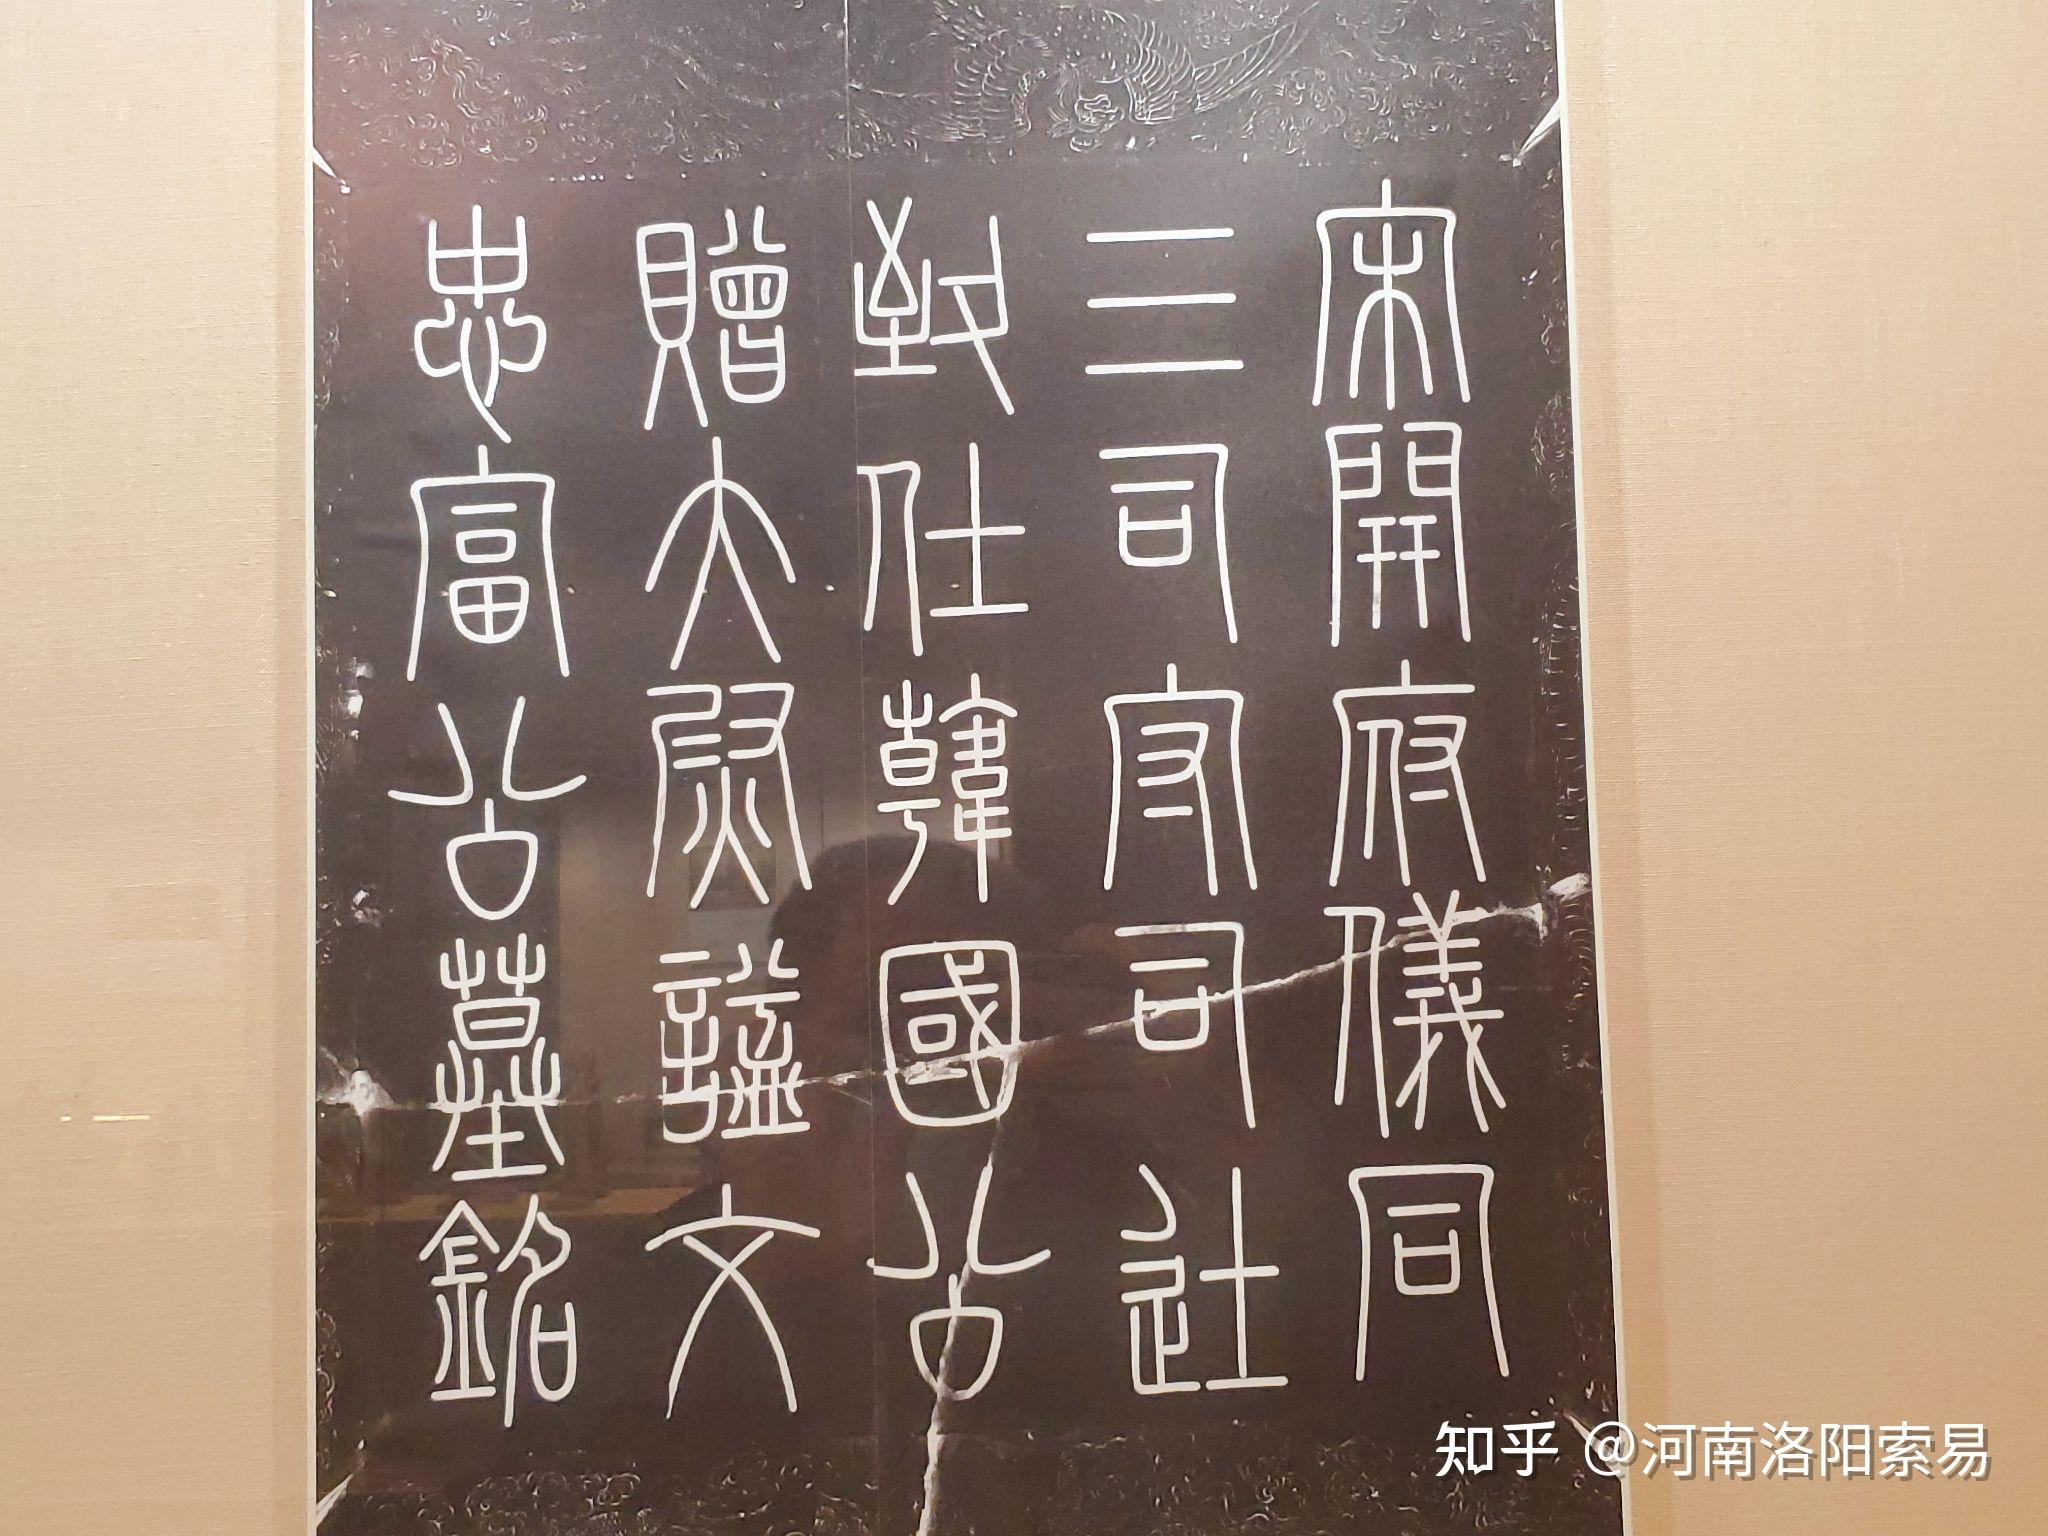 宋開府儀同
三司守司徒
致仕韓國公
贈大尉謚文
忠富公墓銘
知乎 @河南洛阳索易